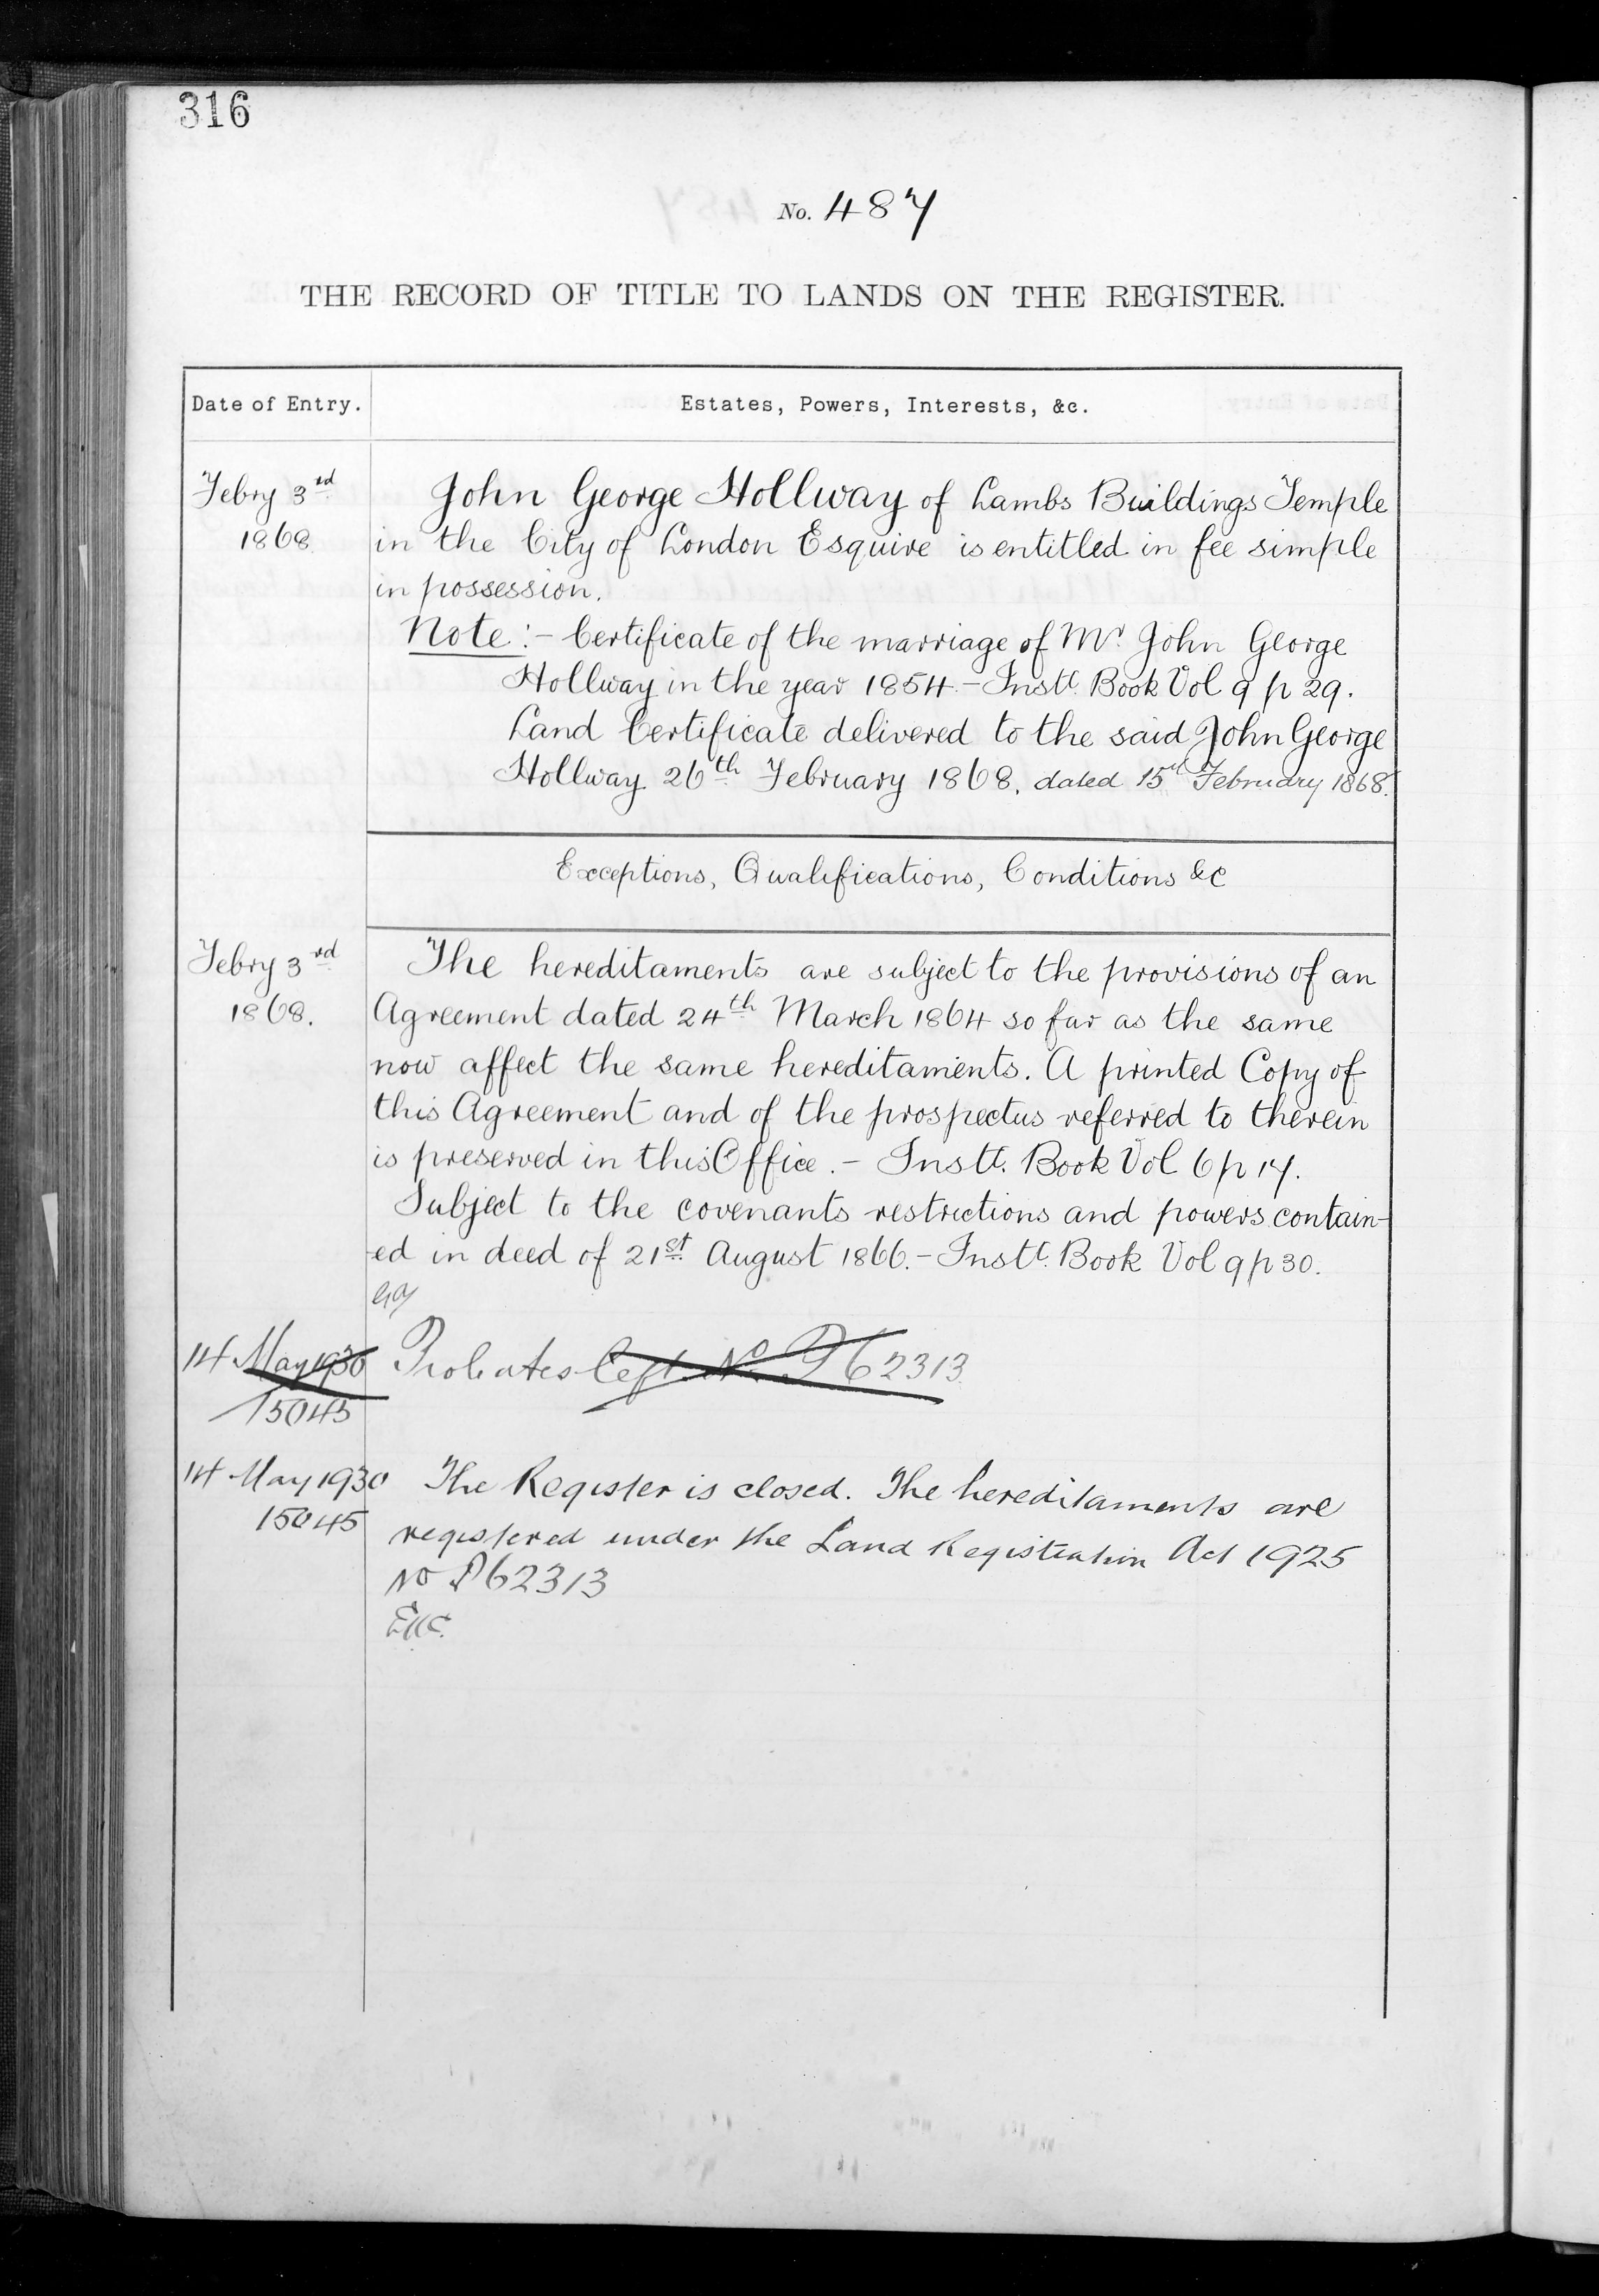 316
No. 487
THE RECORD OF TITLE TO LANDS ON THE REGISTER.
Date of Entry.
Estates, Powers, Interests, &c.
Febry 3rd
1868
John George Hollway of Lambs Buildings Temple
in the City of London Esquire is entitled in fee simple
in possession.
Note:- Certificate of the marriage of Mr. John George
Hollway in the year 1854.- Instt. Book Vol 9 p 29.
Land Certificate delivered to the said John George
Hollway 26th February 1868. dated 15th February 1868.
Exceptions, Qualifications, Conditions &c
Febry 3rd
1868.
The hereditaments are subject to the provisions of an
Agreement dated 24th March 1864 so far as the same
now affect the same hereditaments. A printed Copy of
this Agreement and of the prospectus referred to therein
is preserved in this Office.- Instt. Book Vol 6 p 17.
Subject to the covenants restrictions and powers contain-
-ed in deed of 21st August 1866.- Instt. Book Vol 9 p 30.
14 May 1930
15045
Probates Left. No. P62313
14 May 1930
15045
The Register is closed. The hereditaments are
registered under the Land Registration Act 1925
No P62313